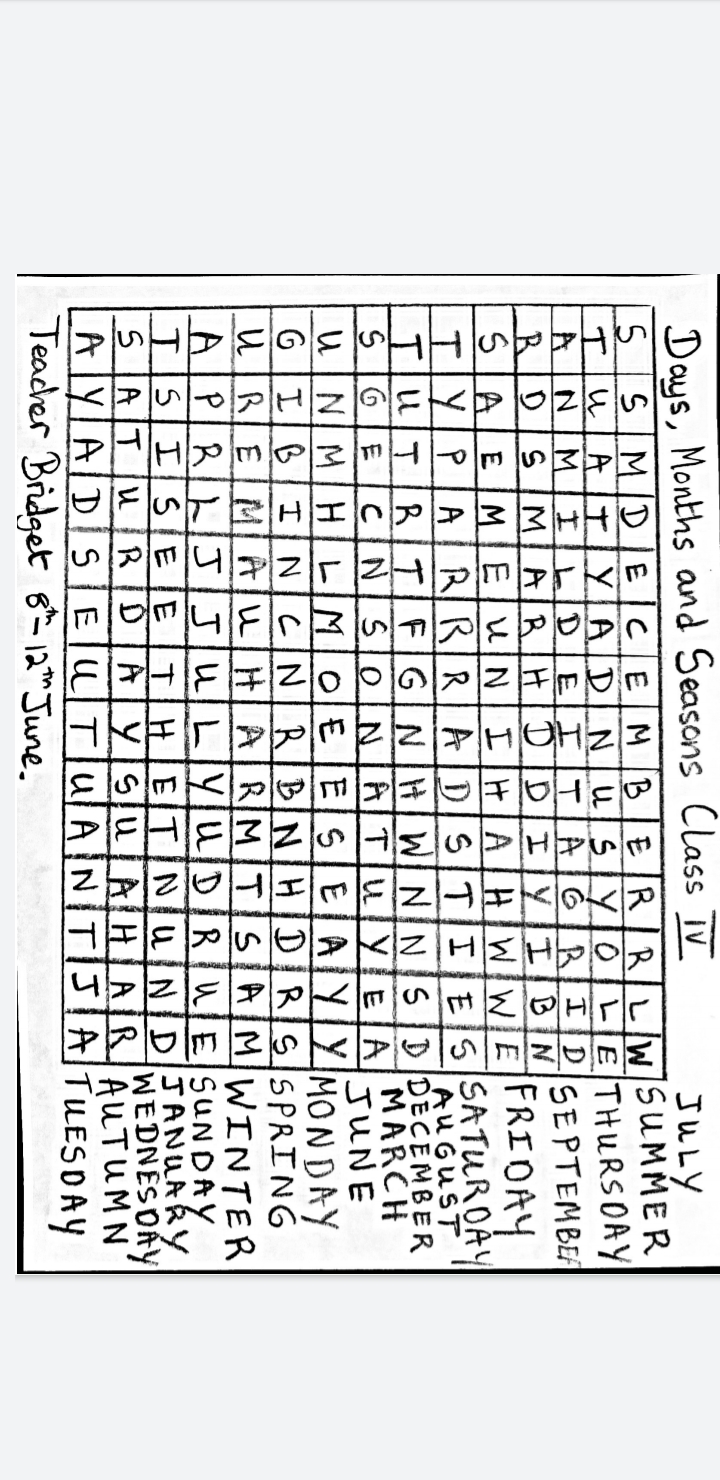 Days, Months and Seasons Class IV
S S M D E C E M B E R R L W
T U A T Y A D N U S Y O L E
A N M I L D E I T A G R I D
R D S M A R H D D I Y I B N
S A E M E U N I H A H W W E
T Y P A R R R A D S T I E S
T U T R T F G N H W N N S D
S G E C N S O N A T U Y E A
U N M H L M O E E S E A Y Y
G I B I N C N R B N H D R S
U R E M A U H A R M T S A M
A P R L J J U L Y U D R U E
T S I S E E T H E T N U N D
S A T U R D A Y S U A H A R
A Y A D S E U T U A N T J A
JULY
SUMMER
THURSDAY
SEPTEMBER
FRIDAY
SATURDAY
AUGUST
DECEMBER
MARCH
JUNE
MONDAY
SPRING
WINTER
SUNDAY
JANUARY
WEDNESDAY
AUTUMN
TUESDAY
Teacher Bridget 8th - 12th June.